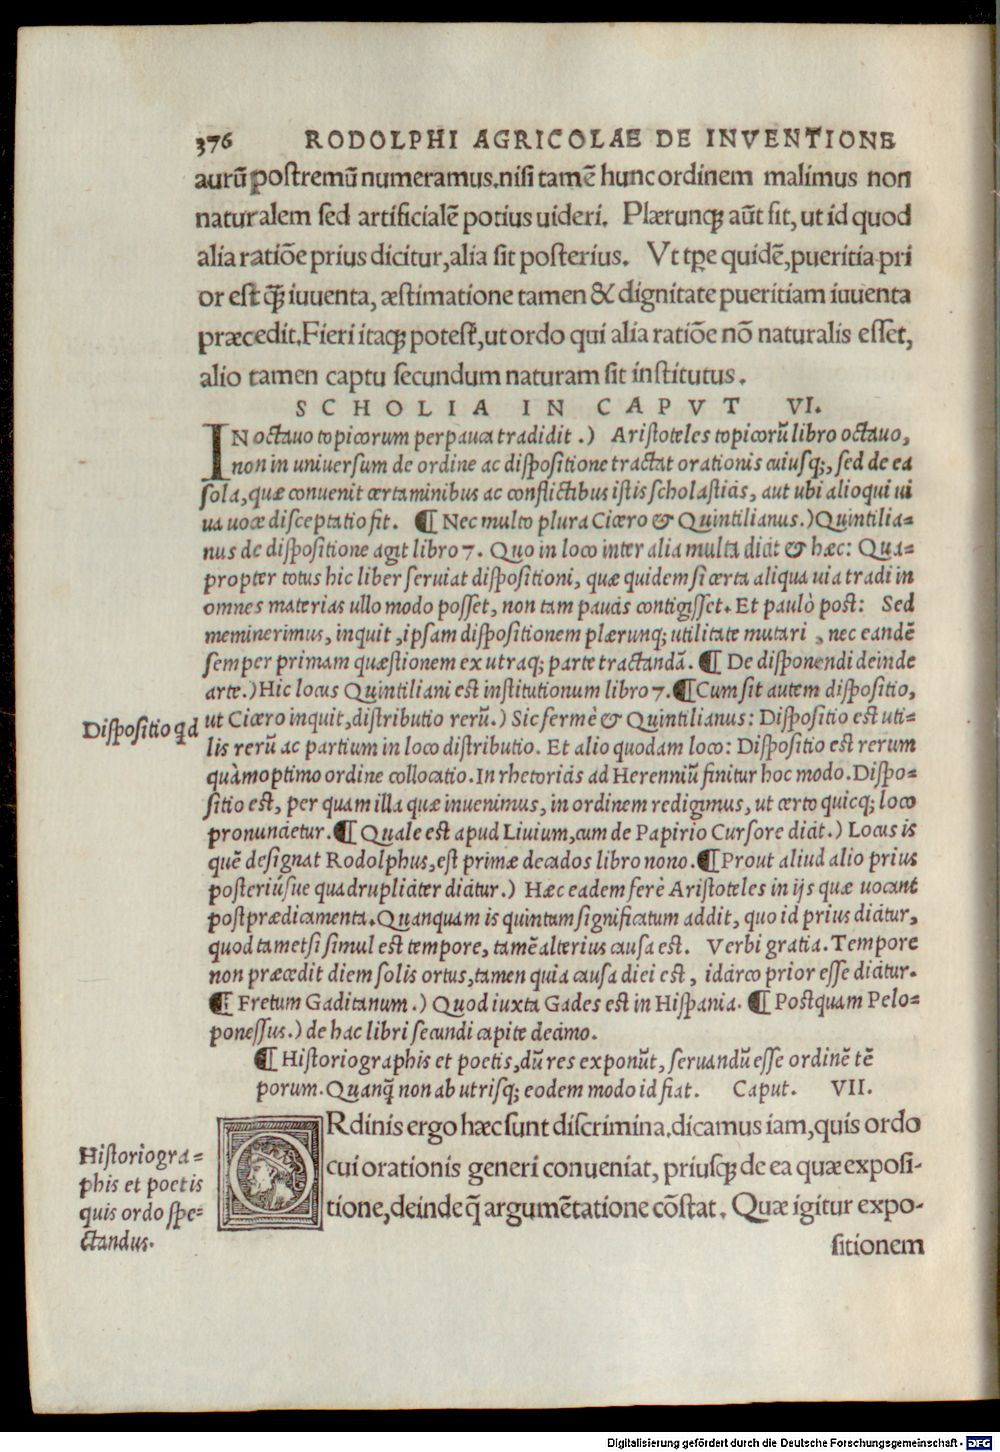 376 RODOLPHI AGRICOLAE DE INVENTIONE
aurũ postremũ numeramus.nisi tamẽ hunc ordinem malimus non
naturalem sed artificialẽ potius uideri. Plærunqꝫ aũt sit, ut id quod
alia ratiõe prius dicitur,alia sit posterius. Vt tpe quidẽ,pueritia pri
or est q̃ꝫ iuuenta, æstimatione tamen & dignitate pueritiam iuuenta
præcedit.Fieri itaqꝫ potest,ut ordo qui alia ratiõe nõ naturalis esset,
alio tamen captu secundum naturam sit institutus.
SCHOLIA IN CAPVT VI.
IN octauo topicorum perpauca tradidit.) Aristoteles topicorũ libro octauo,
non in uniuersum de ordine ac dispositione tractat orationis cuiusq;, sed de ea
sola,quæ conuenit certaminibus ac conflictibus istis scholasticis, aut ubi alioqui ui
ua uoce disceptatio fit. ¶ Nec multo plura Cicero & Quintilianus.)Quintilia=
nus de dispositione agit libro 7. Quo in loco inter alia multa dicit & hæc: Qua=
propter totus hic liber seruiat dispositioni, quæ quidem si certa aliqua uia tradi in
omnes materias ullo modo posset, non tam paucis contigisset. Et paulò post: Sed
meminerimus, inquit ,ipsam dispositionem plærunq; utilitate mutari , nec eandẽ
semper primam quæstionem ex utraq; parte tractandã. ¶ De disponendi deinde
arte.)Hic locus Quintiliani est institutionum libro 7.¶Cum sit autem dispositio,
Dispositio qd
ut Cicero inquit,distributio rerũ.) Sic fermè & Quintilianus: Dispositio est uti=
lis rerũ ac partium in loco distributio. Et alio quodam loco: Dispositio est rerum
quàm optimo ordine collocatio.In rhetoricis ad Herenniũ finitur hoc modo.Dispo=
sitio est, per quam illa quæ inuenimus, in ordinem redigimus, ut certo quicq; loco
pronuncietur.¶ Quale est apud Liuium,cum de Papirio Cursore dicit.) Locus is
quẽ designat Rodolphus,est primæ decados libro nono.¶Prout aliud alio prius
posteriúsue quadrupliciter dicitur.) Hæc eadem ferè Aristoteles in ijs quæ uocant
postprædicamenta.Quanquam is quintum significatum addit, quo id prius dicitur,
quod tametsi simul est tempore, tamẽ alterius causa est. Verbi gratia.Tempore
non præcedit diem solis ortus,tamen quia causa diei est, idcirco prior esse dicitur.
¶ Fretum Gaditanum.) Quod iuxta Gades est in Hispania. ¶ Postquam Pelo=
ponessus.) de hac libri secundi capite decimo.
¶ Historiographis et poetis,dũ res exponũt, seruandũ esse ordinẽ tẽ
porum.Quanq̃ non ab utrisq; eodem modo id fiat. Caput. VII.
ORdinis ergo hæc sunt discrimina.dicamus iam,quis ordo
cui orationis generi conueniat, priusqꝫ de ea quæ exposi-
tione,deinde q̃ argumẽtatione cõstat. Quæ igitur expo-
Historiogra=
phis et poetis
quis ordo spe=
ctandus.
sitionem
Digitalisierung gefördert durch die Deutsche Forschungsgemeinschaft - DFG